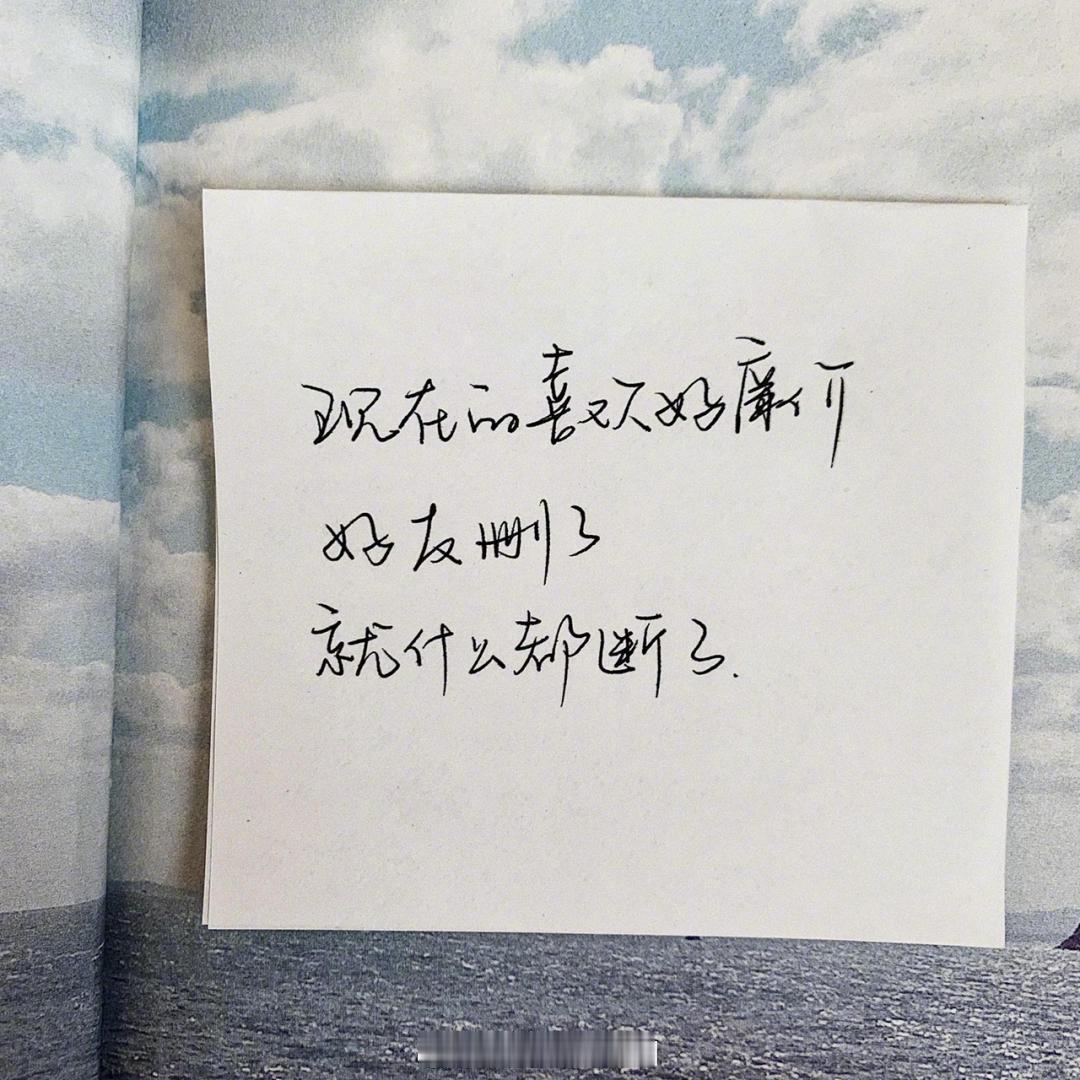 现在的喜欢好廉价
好友删了
就什么都断了.